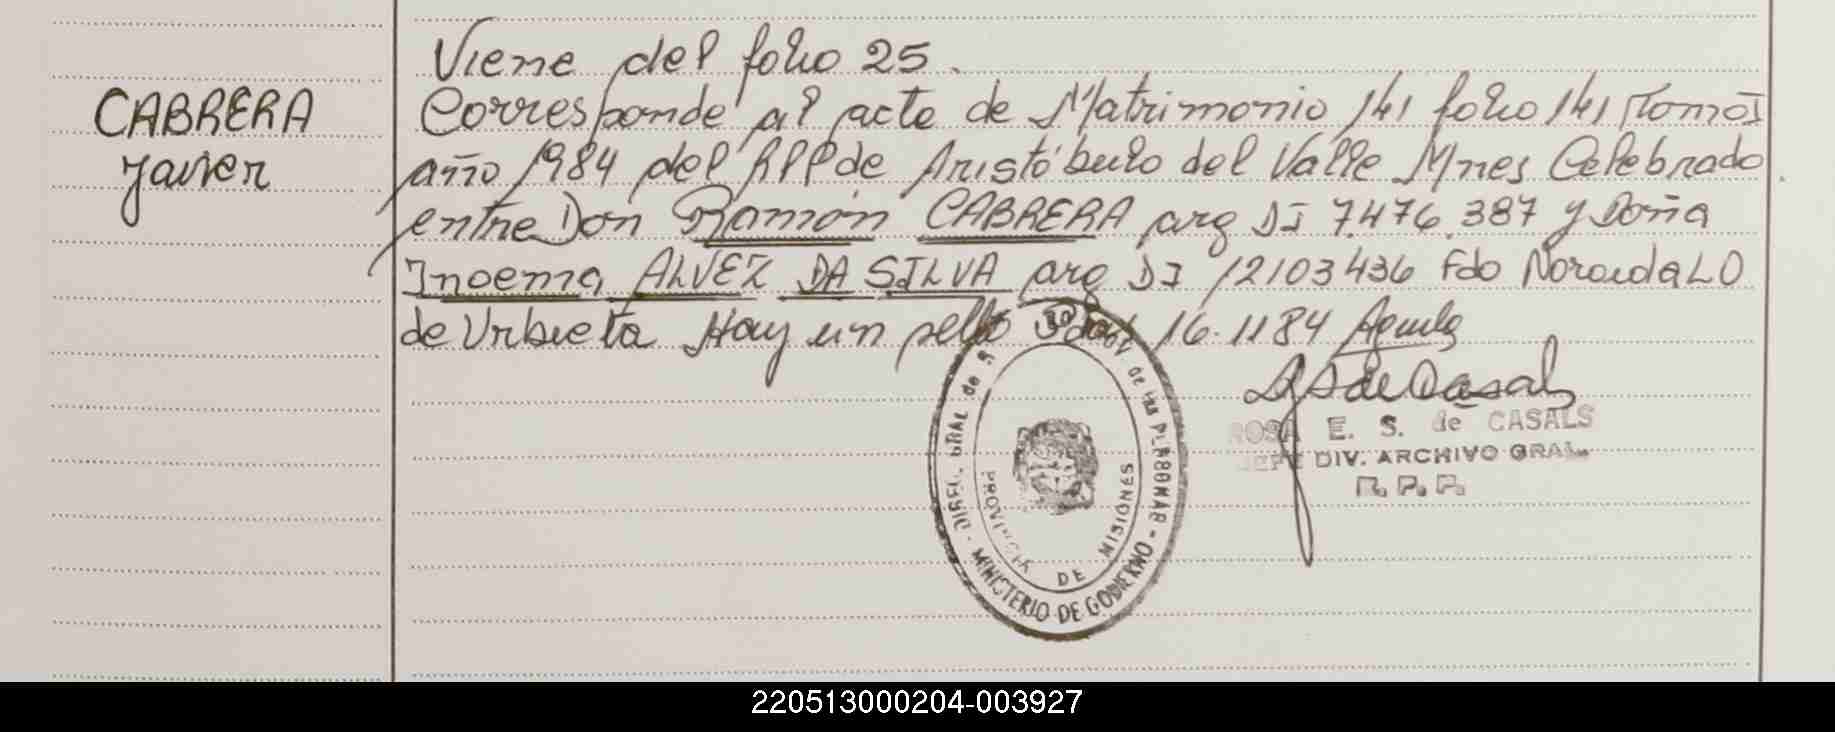 CABRERA
Javier
Viene del folio 25.
Corresponde al acta de Matrimonio 141 folio 141 Tomo I
año 1984 del RPP de Aristóbulo del Valle Mnes Celebrado
entre Don Ramón CABRERA arg DI 7.476.387 y Doña
Inoema ALVEZ DA SILVA arg DI 12103436 Fdo
de Urbieta Hay un sello 16.11 84
ROSA E. S. de CASALS
JEFE DIV. ARCHIVO GRAL.
R. P. P.
DIREC. GRAL de de las PERSONAS
MINISTERIO DE GOBIERNO
PROVINCIA DE MISIONES
220513000204-003927